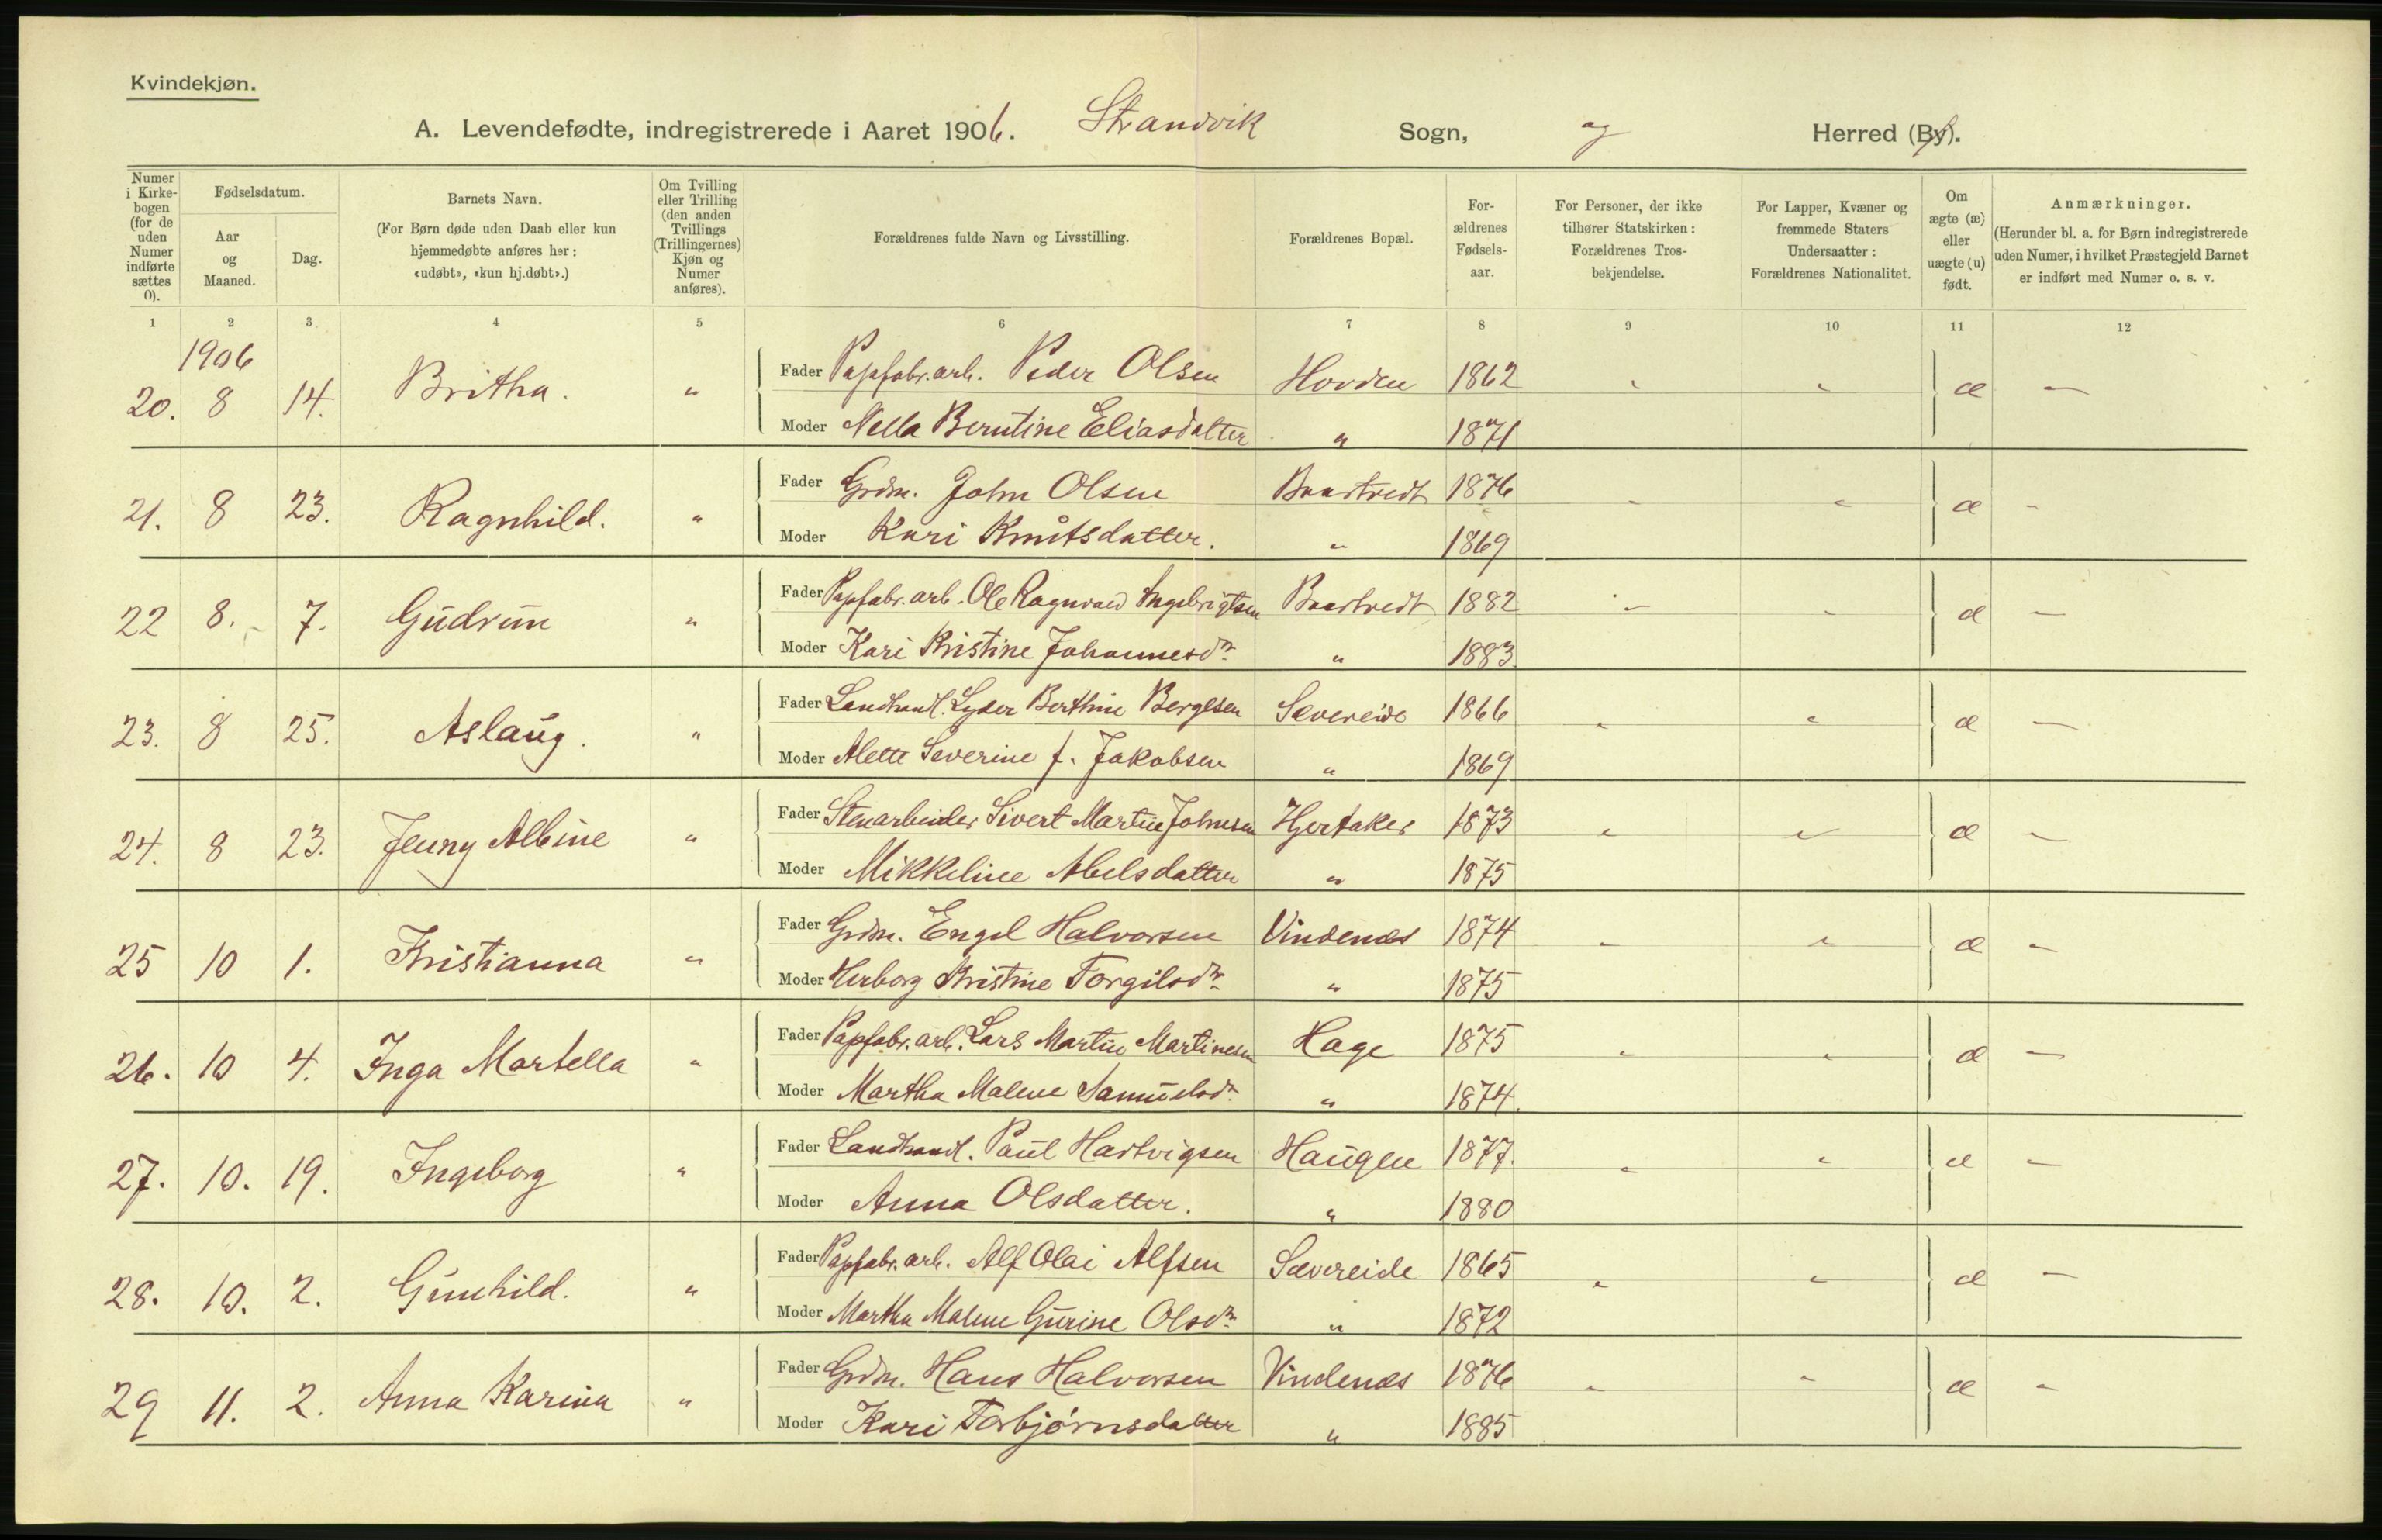 Kvindekjøn.
A. Levendefødte, indregistrerede i Aaret 1906. Strandvik Sogn, og Herred (By).
Numer i Kirke-bogen (for de uden Numer indførte sættes 0).
Fødselsdatum.
Aar og Maaned.
Dag.
Barnets Navn.
(For Børn døde uden Daab eller kun hjemmedøbte anføres her: «udøbt», «kun hj.døbt».)
Om Tvilling eller Trilling (den anden Tvillings (Trillingernes) Kjøn og Numer anføres).
Forældrenes fulde Navn og Livsstilling.
Forældrenes Bopæl.
For-ældrenes Fødsels-aar.
For Personer, der ikke tilhører Statskirken: Forældrenes Tros-bekjendelse.
For Lapper, Kvæner og fremmede Staters Undersaatter: Forældrenes Nationalitet.
Om ægte (æ) eller uægte (u) født.
Anmærkninger.
(Herunder bl. a. for Børn indregistrerede uden Numer, i hvilket Præstegjeld Barnet er indført med Numer o. s. v.
1 2 3 4 5 6 7 8 9 10 11 12
1906
20. 8 14. Britha. " Fader Papfabr.arb. Peder Olsen Hovden 1862 " " æ —
Moder Nella Berntine Eliasdatter " 1871
21. 8 23. Ragnhild. " Fader Grdm. John Olsen 1876 " " æ -
Moder Kari Knutsdatter. " 1869
22 8. 7. Gudrun " Fader Papfabr.arb. Ole Ragnvald Ingebrigtsen 1882 " " æ —
Moder Kari Kristine Johannesdr. " 1883
23. 8 25. Aslaug. " Fader Landhandl. Lyder Berthin Bergesen Sævereide 1866 " " æ —
Moder Alette Severine f. Jakobsen " 1869
24. 8 23. Jenny Albine " Fader Stenarbeider Sivert Martin Johnsen Hjertaker 1873 " " æ -
Moder Mikkeline Abelsdatter " 1875
25 10 1. Kristianna " Fader Grdm. Engel Halvorsen Vindenæs 1874 " " æ -
Moder Herborg Kristine Torgilsdr. " 1875
26. 10 4. Inga Martella " Fader Papfabr.arb. Lars Martin Martinesen Hage 1875 " " æ —
Moder Martha Malene Samuelsdr. " 1874.
27. 10. 19. Ingeborg " Fader Landhandl. Paul Hartvigsen Haugen 1877. " " æ -
Moder Anna Olsdatter. " 1880
28. 10. 2. Gunhild. " Fader Papfabr.arb. Alf Olai Alfsen Sævereide 1865 " " æ —
Moder Martha Malene Gurine Olsdr. " 1872
29 11. 2. Anna Karina " Fader Grdm. Hans Halvorsen Vindenæs 1876 " " æ "
Moder Kari Torbjørnsdatter " 1885